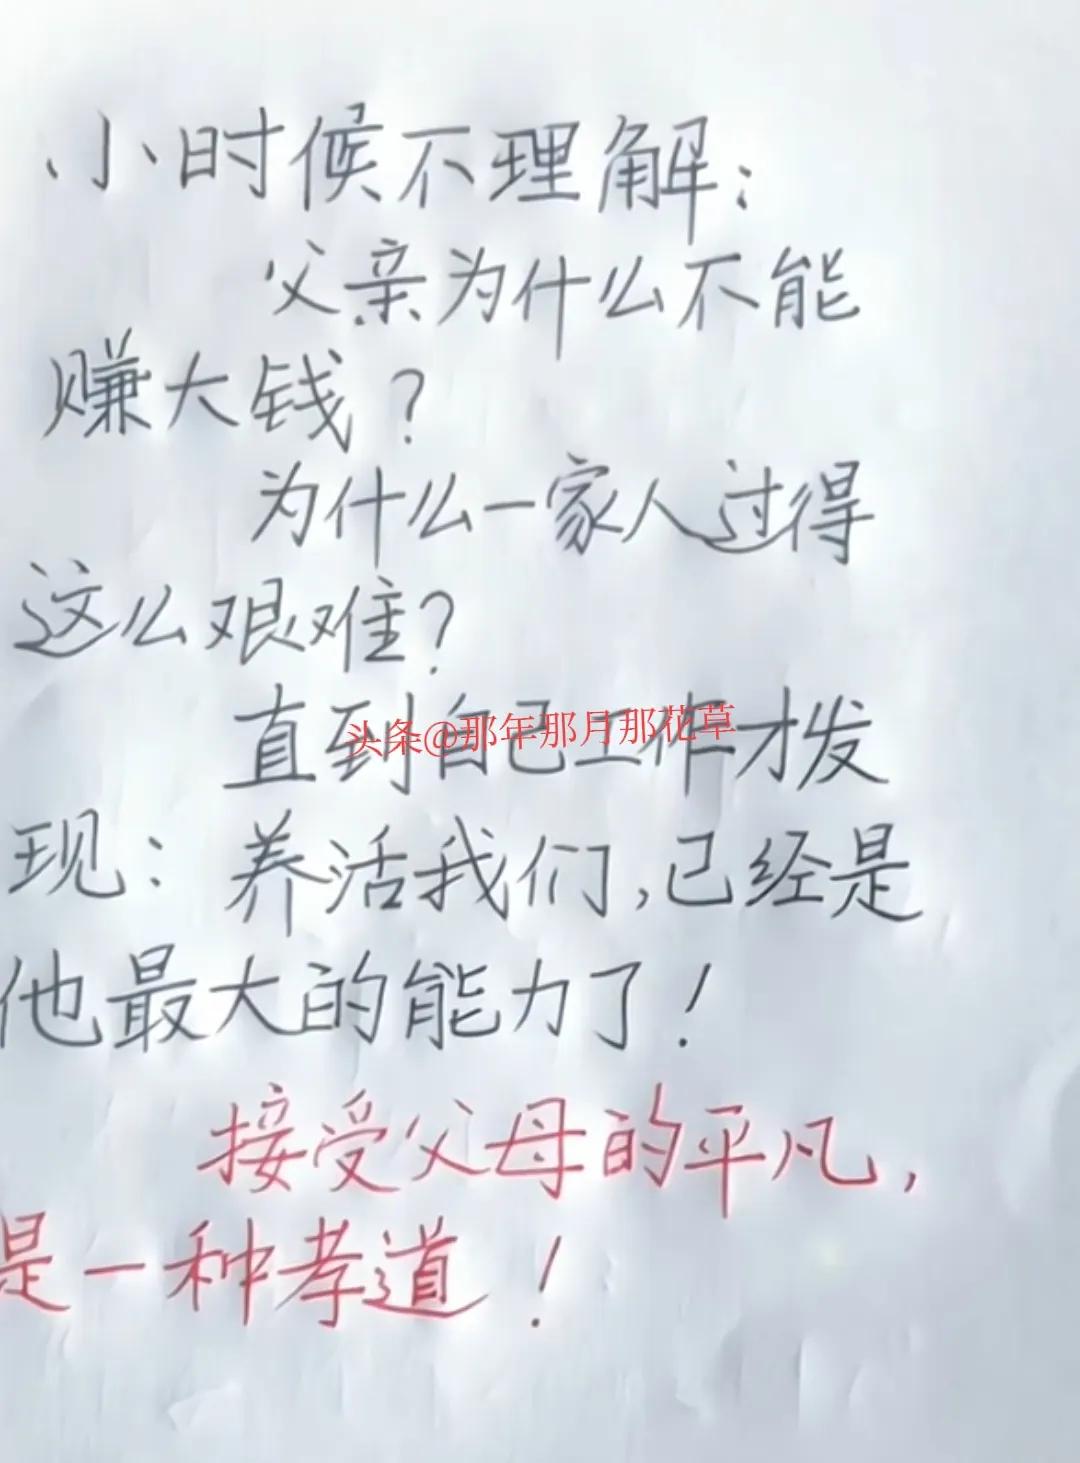 小时候不理解：
父亲为什么不能
赚大钱？
为什么一家人过得
这么艰难？
直到自己工作才发
头条@那年那月那花草
现：养活我们，已经是
他最大的能力了！
接受父母的平凡，
是一种孝道！